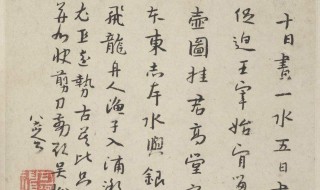 十日畫一水五日
促迫王宰始肯留
壺圖挂君高堂
本東赤岸水與銀
飛龍舟人漁子入浦漵
尤工遠勢古莫比咫
并州快剪刀剪取吳
八大山人